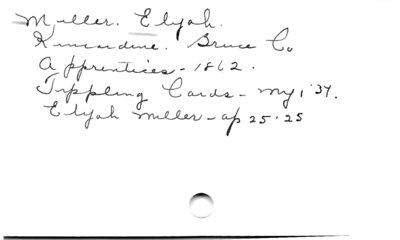 Miller. Elyah.
Kincardine. Bruce Co
Apprentices - 1862.
Trppling Cards - my 1 '34.
Elyah Miller - ap 25 · 25